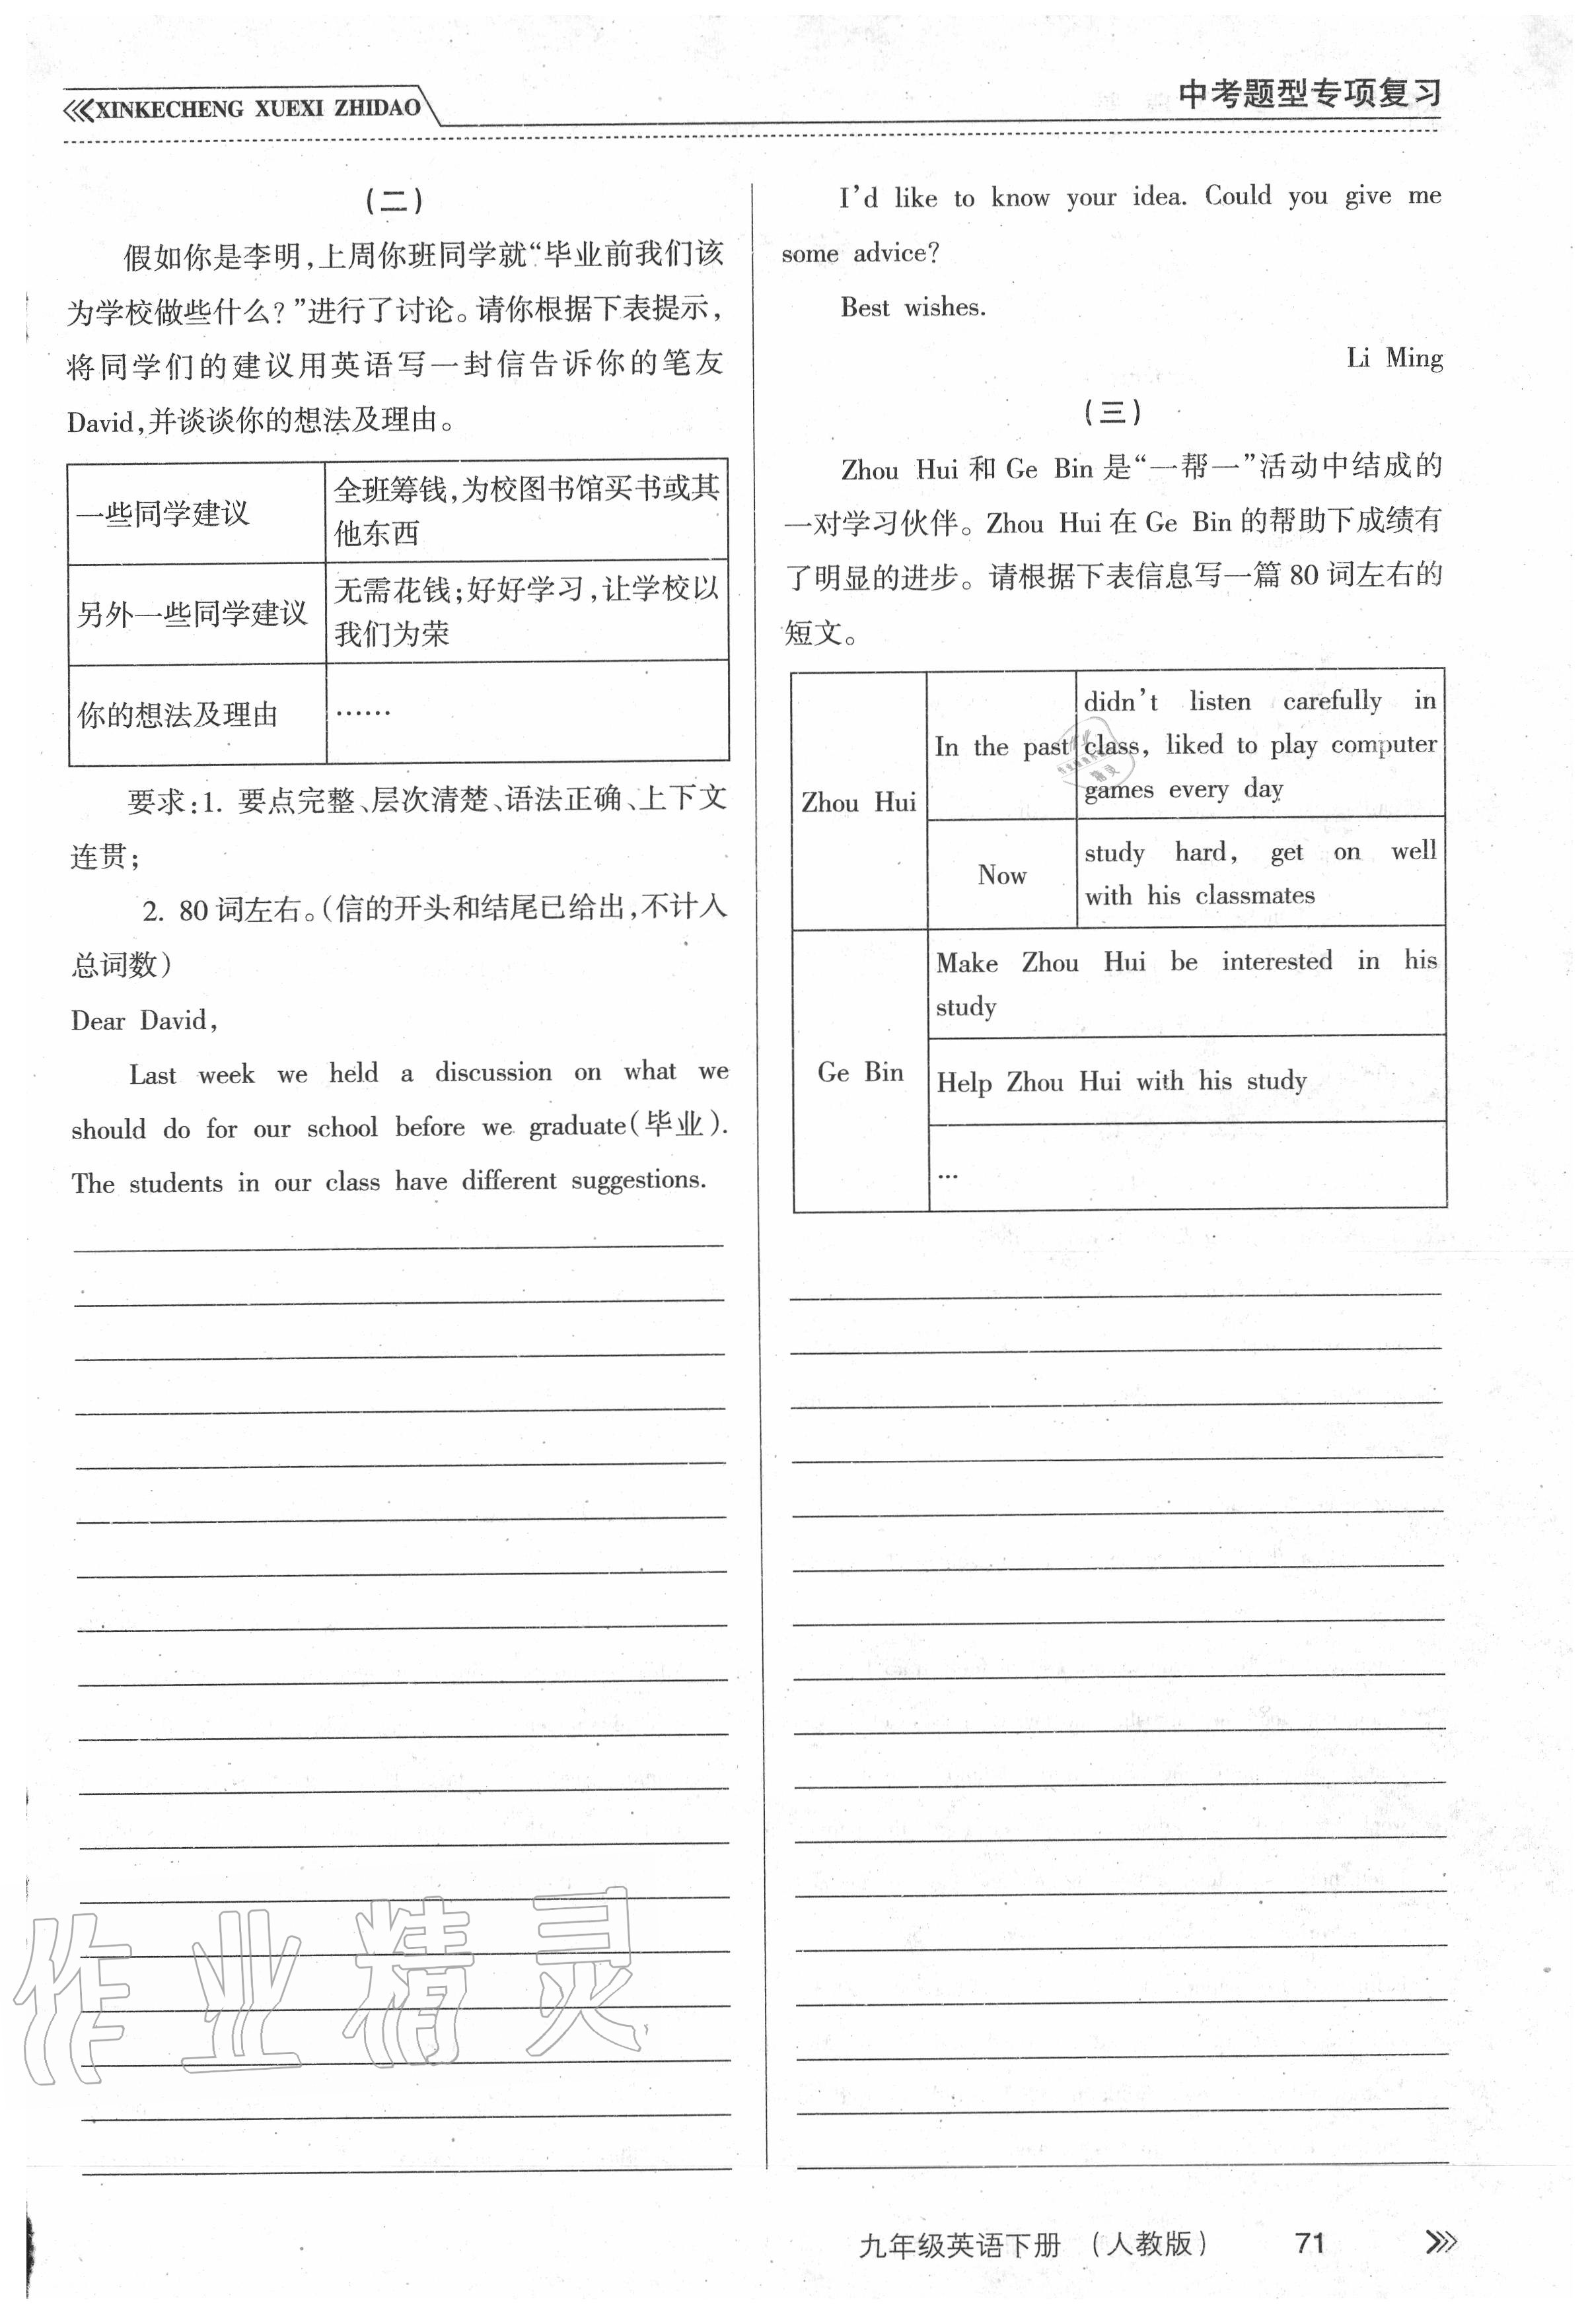 XINKECHENG XUEXI ZHIDAO
中考题型专项复习
(二)
假如你是李明,上周你班同学就“毕业前我们该
为学校做些什么?”进行了讨论。请你根据下表提示,
将同学们的建议用英语写一封信告诉你的笔友
David,并谈谈你的想法及理由。
一些同学建议
全班筹钱,为校图书馆买书或其
他东西
另外一些同学建议
无需花钱;好好学习,让学校以
我们为荣
你的想法及理由
……
要求:1. 要点完整、层次清楚、语法正确、上下文
连贯;
2. 80词左右。(信的开头和结尾已给出,不计入
总词数)
Dear David,
Last week we held a discussion on what we
should do for our school before we graduate(毕业).
The students in our class have different suggestions.
I'd like to know your idea. Could you give me
some advice?
Best wishes.
Li Ming
(三)
Zhou Hui和Ge Bin是“一帮一”活动中结成的
一对学习伙伴。Zhou Hui在Ge Bin的帮助下成绩有
了明显的进步。请根据下表信息写一篇80词左右的
短文。
Zhou Hui
In the past
didn't listen carefully in
class, liked to play computer
games every day
Now
study hard, get on well
with his classmates
Ge Bin
Make Zhou Hui be interested in his
study
Help Zhou Hui with his study
...
作业精灵
九年级英语下册 (人教版) 71